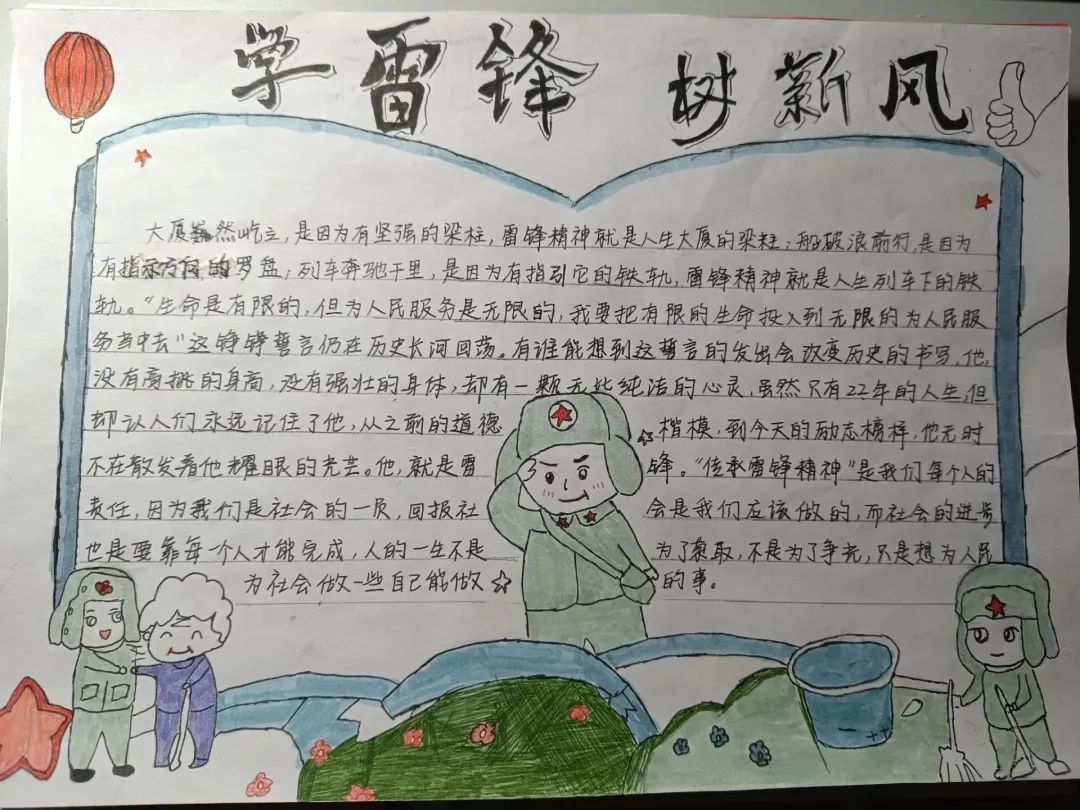 学雷锋 树新风
大厦巍然屹立，是因为有坚强的梁柱，雷锋精神就是人生大厦的梁柱；船破浪前行，是因为
有指示方向的罗盘；列车奔驰千里，是因为有指引它的铁轨，雷锋精神就是人生列车下的铁
轨。“生命是有限的，但为人民服务是无限的，我要把有限的生命投入到无限的为人民服
务当中去”这铮铮誓言仍在历史长河回荡。有谁能想到这誓言的发出会改变历史的书写，他，
没有高挑的身高，没有强壮的身体，却有一颗无比纯洁的心灵，虽然只有22年的人生，但
却让人们永远记住了他，从之前的道德楷模，到今天的励志榜样，他无时
不在散发着他耀眼的光芒。他，就是雷锋。“传承雷锋精神”是我们每个人的
责任，因为我们是社会的一员，回报社会是我们应该做的，而社会的进步
也是要靠每一个人才能完成，人的一生不是为了索取，不是为了争光，只是想为人民
为社会做一些自己能做的事。